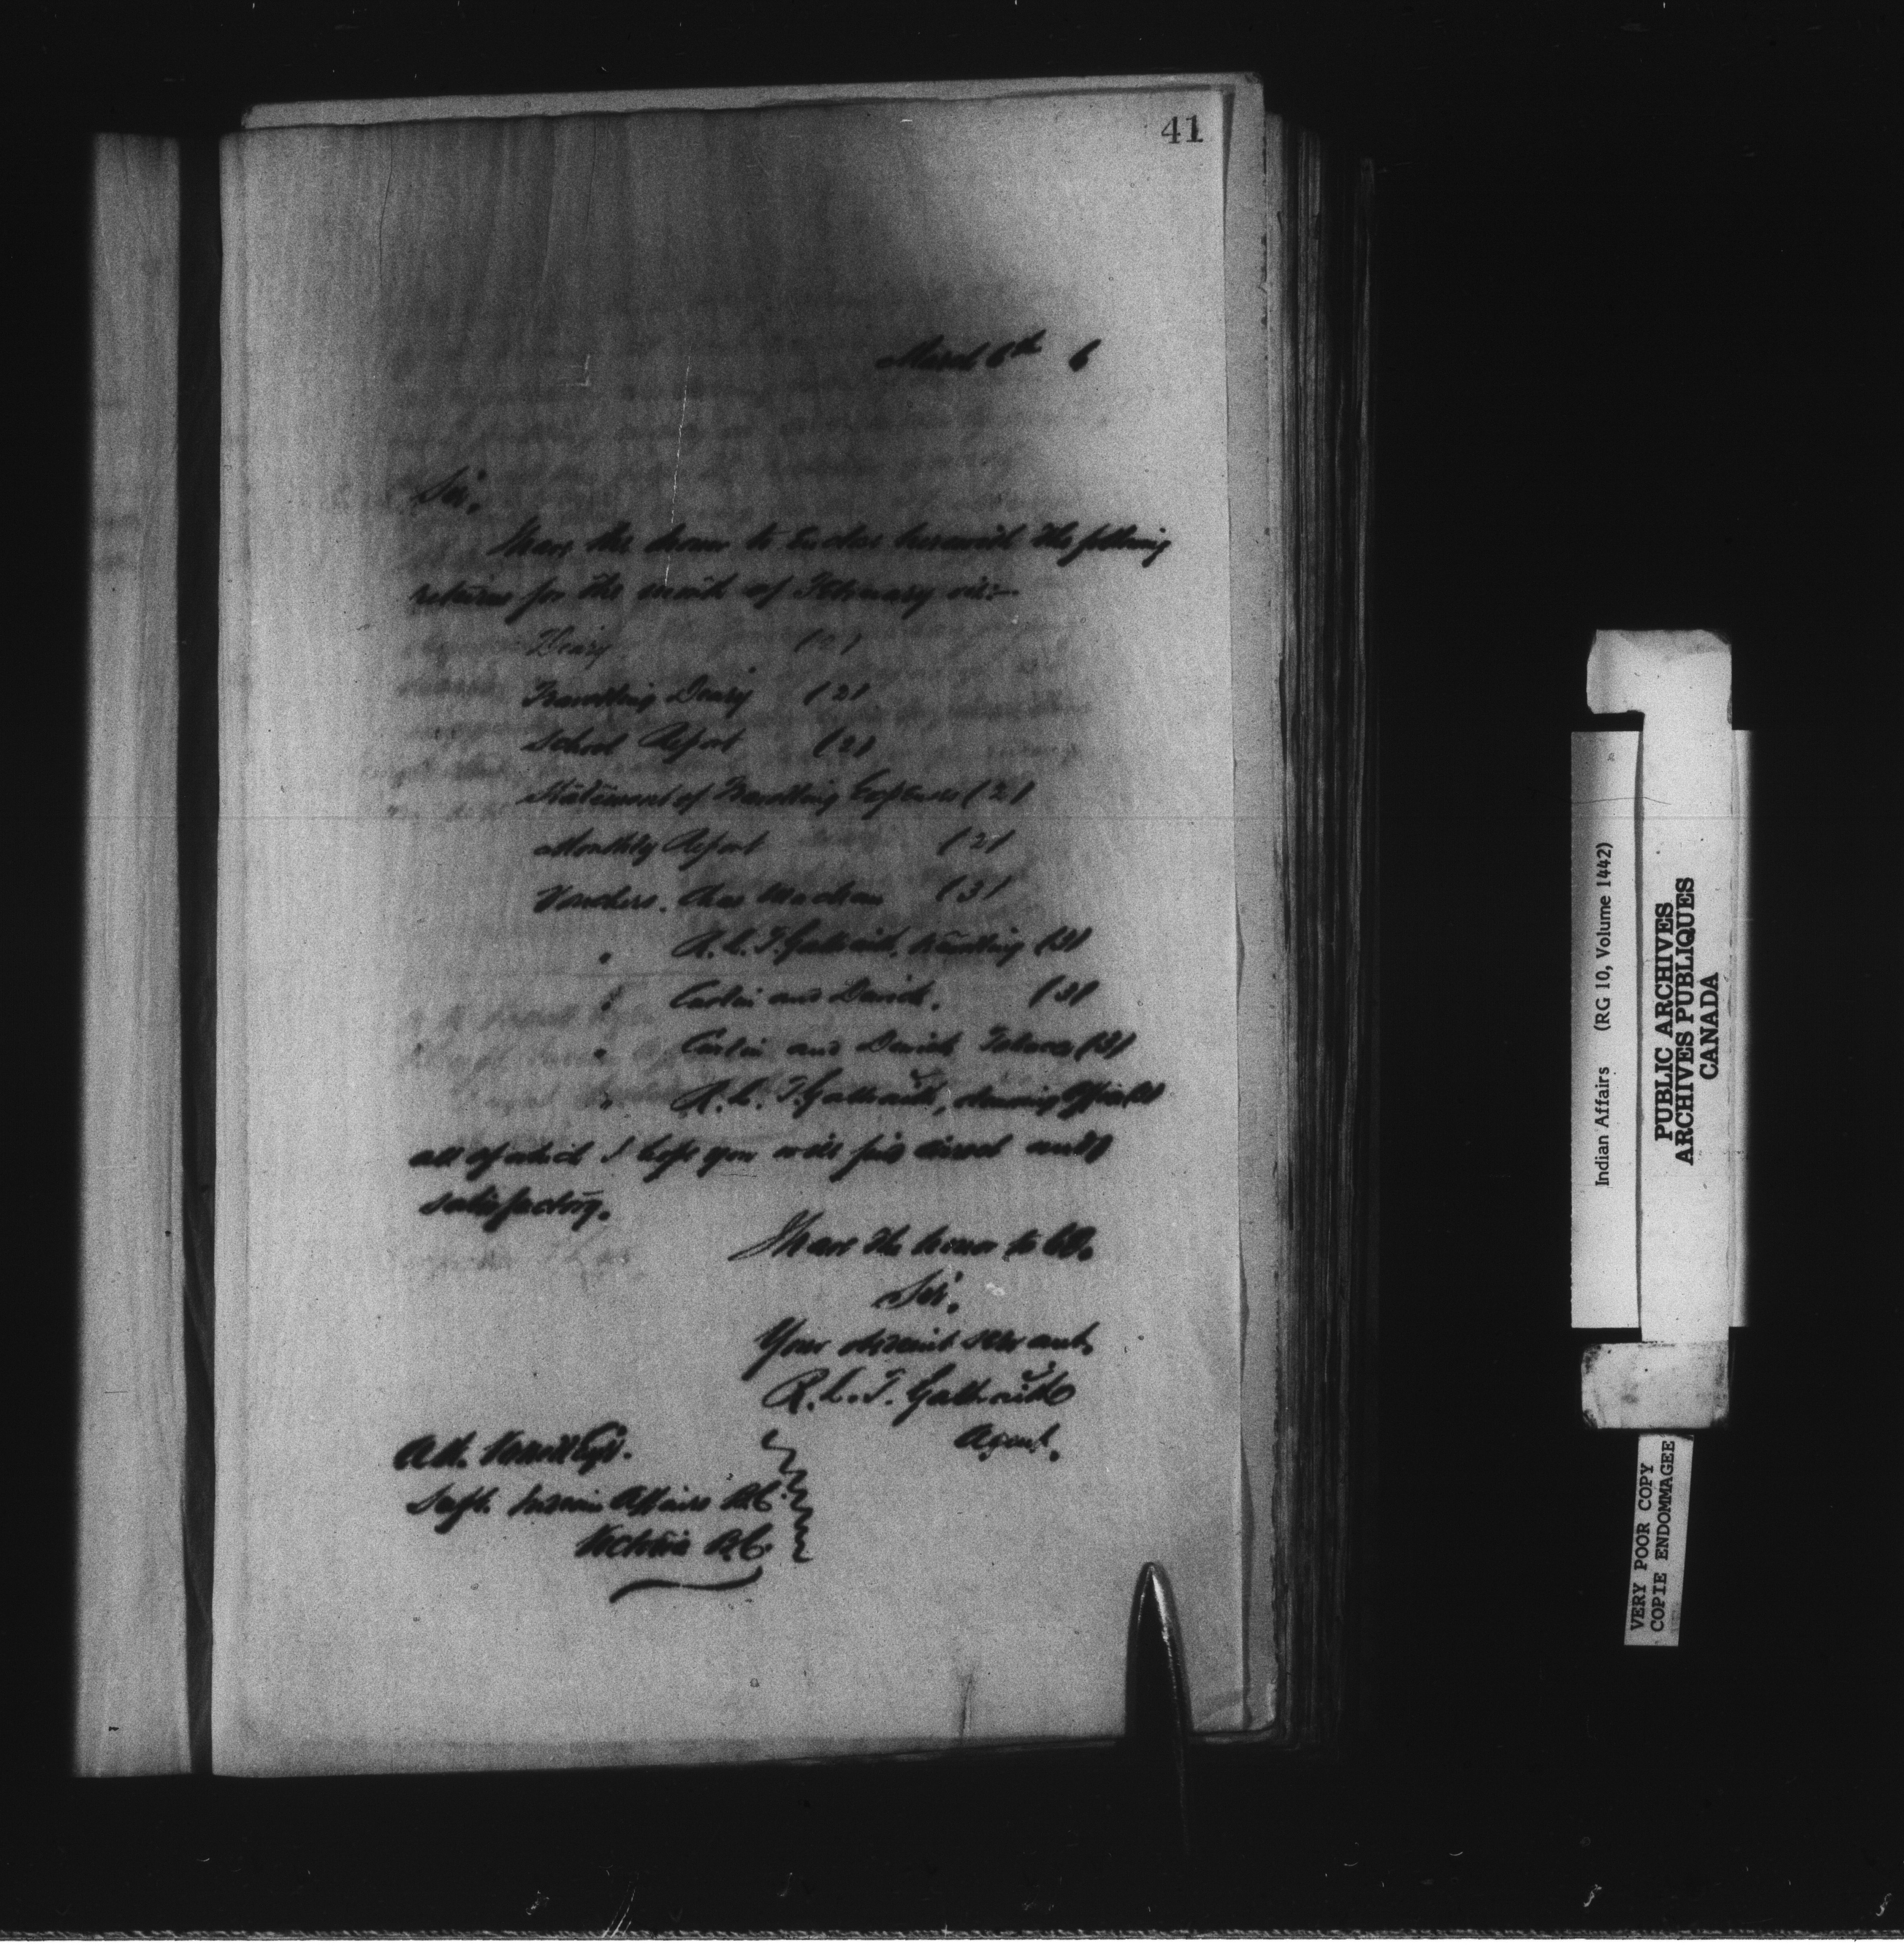 41
March 6th 6
Sir,
I have the honor to enclose herewith the following
returns for the month of February viz:-
Diary (2)
Travelling Diary (2)
School Report (2)
Statement of Travelling Expenses (2)
Monthly Report (2)
Vouchers. Chas (3)
" R. L. T. Galbraith, travelling (3)
" Carlin and Durick. (3)
" Carlin and Durick (3)
" R. L. T. Galbraith, Office
all of which I hope you will find correct and
satisfactory.
I have the honor to be,
Sir,
Your obedient servant,
R. L. T. Galbraith
Agent.
A. W. Vowell Esqr.
Supt. Indian Affairs B.C.
Victoria B.C.
Indian Affairs (RG 10, Volume 1442)
PUBLIC ARCHIVES
ARCHIVES PUBLIQUES
CANADA
VERY POOR COPY
COPIE ENDOMMAGEE